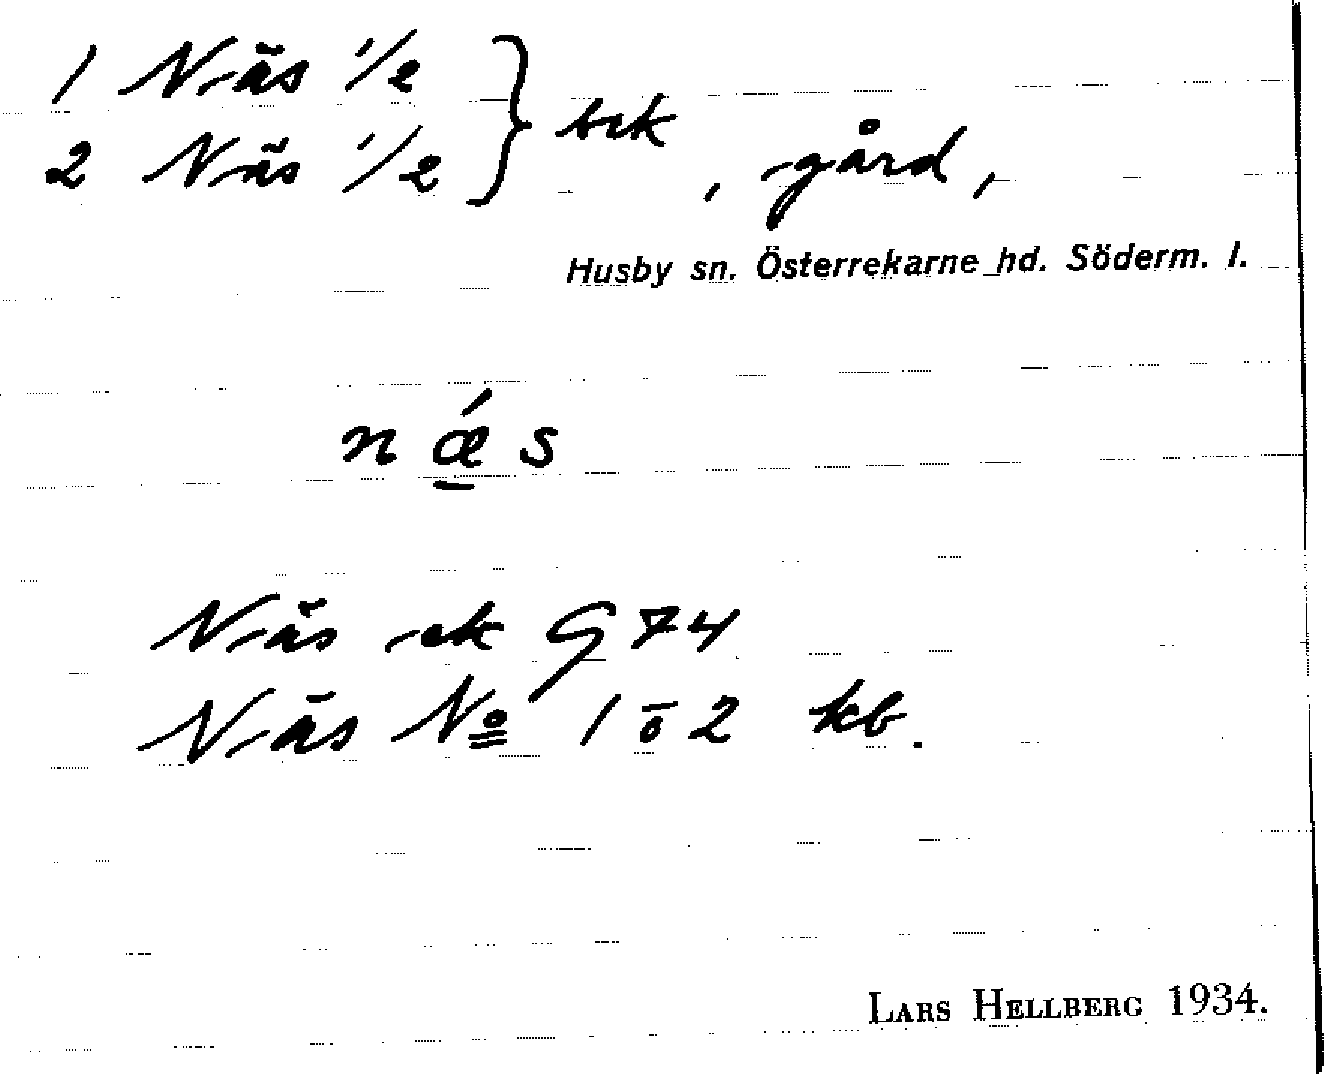 1 Näs 1/2
2 Näs 1/2 } brk, gård,
Husby sn. Österrekarne hd. Söderm. l.
n ǽ s
Näs ek G 74
Näs No 1 o 2 kb.
LARS HELLBERG 1934.